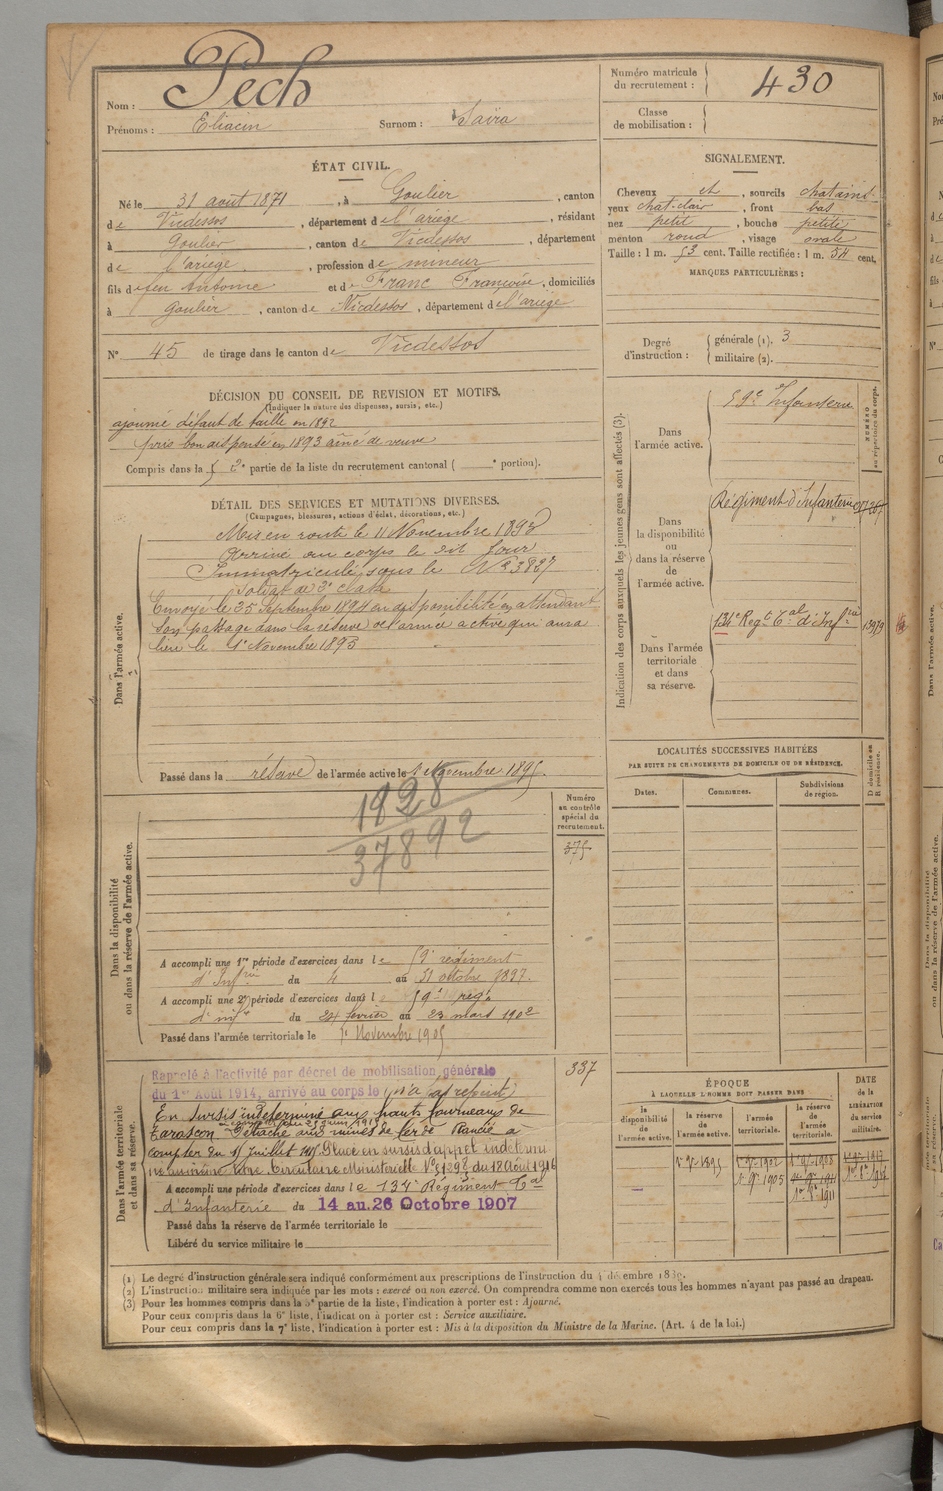 Nom : Pech
Prénoms : Eliacin Surnom : Saïra
Numéro matricule du recrutement : 430
Classe de mobilisation :
ÉTAT CIVIL.
Né le 31 août 1871, à Goulier, canton
de Vicdessos, département de l'ariège, résidant
à Goulier, canton de Vicdessos, département
de l'ariège, profession de mineur
fils de feu Antoine et de Franc Françoise, domiciliés
à Goulier, canton de Vicdessos, département de l'ariège
N° 45 de tirage dans le canton de Vicdessos
SIGNALEMENT.
Cheveux et, sourcils chatains
yeux chat-clair, front bas
nez petit, bouche petite
menton rond, visage ovale
Taille : 1 m. 53 cent. Taille rectifiée : 1 m. 54 cent.
MARQUES PARTICULIÈRES :
Degré d'instruction : générale (1). 3
militaire (2).
DÉCISION DU CONSEIL DE REVISION ET MOTIFS.
(Indiquer la nature des dispenses, sursis, etc.)
ajourné défaut de taille en 1892
pris bon dispensé en 1893 aîné de veuve
Compris dans la 2e partie de la liste du recrutement cantonal ( e portion).
DÉTAIL DES SERVICES ET MUTATIONS DIVERSES.
(Campagnes, blessures, actions d'éclat, décorations, etc.)
Dans l'armée active.
Mis en route le 11 Novembre 1893
Arrivé au corps le dit jour
Immatriculé sous le N° 3827
Soldat de 2e classe
Envoyé le 25 Septembre 1894 en disponibilité en attendant
son passage dans la réserve de l'armée active qui aura
lieu le 1er Novembre 1895
Passé dans la réserve de l'armée active le 1 Novembre 1895.
Indication des corps auxquels les jeunes gens sont affectés (3).
NUMÉRO au répertoire du corps.
Dans l'armée active.
59e Infanterie
Dans la disponibilité ou dans la réserve de l'armée active.
Régiment d'Infanterie
Dans l'armée territoriale et dans sa réserve.
134e Regt Cal d'Infrie 13979
LOCALITÉS SUCCESSIVES HABITÉES
PAR SUITE DE CHANGEMENTS DE DOMICILE OU DE RÉSIDENCE.
Dates. Communes. Subdivisions de région. D domicile ou R résidence.
Dans la disponibilité ou dans la réserve de l'armée active.
Numéro au contrôle spécial du recrutement.
375
1928
37892
A accompli une 1re période d'exercices dans le 59e régiment
d'Infrie du 4 au 31 octobre 1897.
A accompli une 2e période d'exercices dans le 59e regt
d'infie du 24 février au 23 mars 1902
Passé dans l'armée territoriale le 1er Novembre 1905
Dans l'armée territoriale et dans sa réserve.
337
Rappelé à l'activité par décret de mobilisation générale
du 1er Août 1914, arrivé au corps le (n'a pas rejoint)
En Sursis indéterminé aux hauts fourneaux de
Tarascon Détaché aux mines de fer de Rancié à
compter du 15 Juillet 1915 Placé en sursis d'appel indétermi
né Circulaire Ministérielle du 18 Août 1916
A accompli une période d'exercices dans le 134e Régiment Cal
d'Infanterie du 14 au 26 Octobre 1907
Passé dans la réserve de l'armée territoriale le
Libéré du service militaire le
ÉPOQUE
À LAQUELLE L'HOMME DOIT PASSER DANS
DATE de la LIBÉRATION du service militaire.
la disponibilité de l'armée active. la réserve de l'armée active. l'armée territoriale. la réserve de l'armée territoriale.
1er 9re 1895 1er 9re 1902 1er 9re 1908
1er 9re 1905 1er 9re 1911
1er 8re 1911
(1) Le degré d'instruction générale sera indiqué conformément aux prescriptions de l'instruction du 4 décembre 1889.
(2) L'instruction militaire sera indiquée par les mots : exercé ou non exercé. On comprendra comme non exercés tous les hommes n'ayant pas passé au drapeau.
(3) Pour les hommes compris dans la 5e partie de la liste, l'indication à porter est : Ajourné.
Pour ceux compris dans la 6e liste, l'indication à porter est : Service auxiliaire.
Pour ceux compris dans la 7e liste, l'indication à porter est : Mis à la disposition du Ministre de la Marine. (Art. 4 de la loi.)